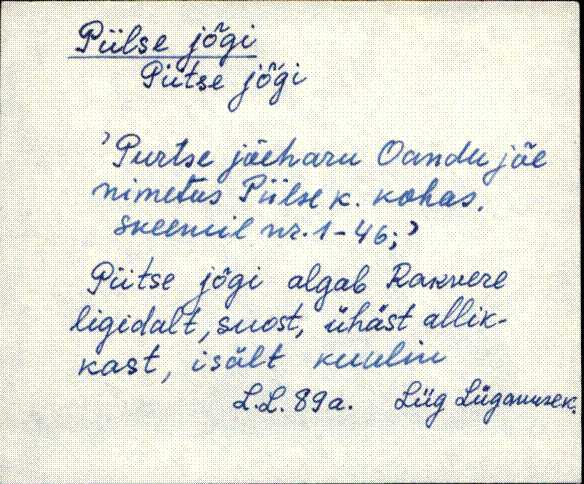 Piilse jõgi
Piitse jõgi
'Purtse jõeharu Oandu jõe
nimetus Piilse k. kohas.
skeemil nr. 1-46;'
Piitse jõgi algab Rakvere
ligidalt, suost, ühäst allik-
kast, isält kuulin
L.L. 89a. Lüg Lüganuse k.